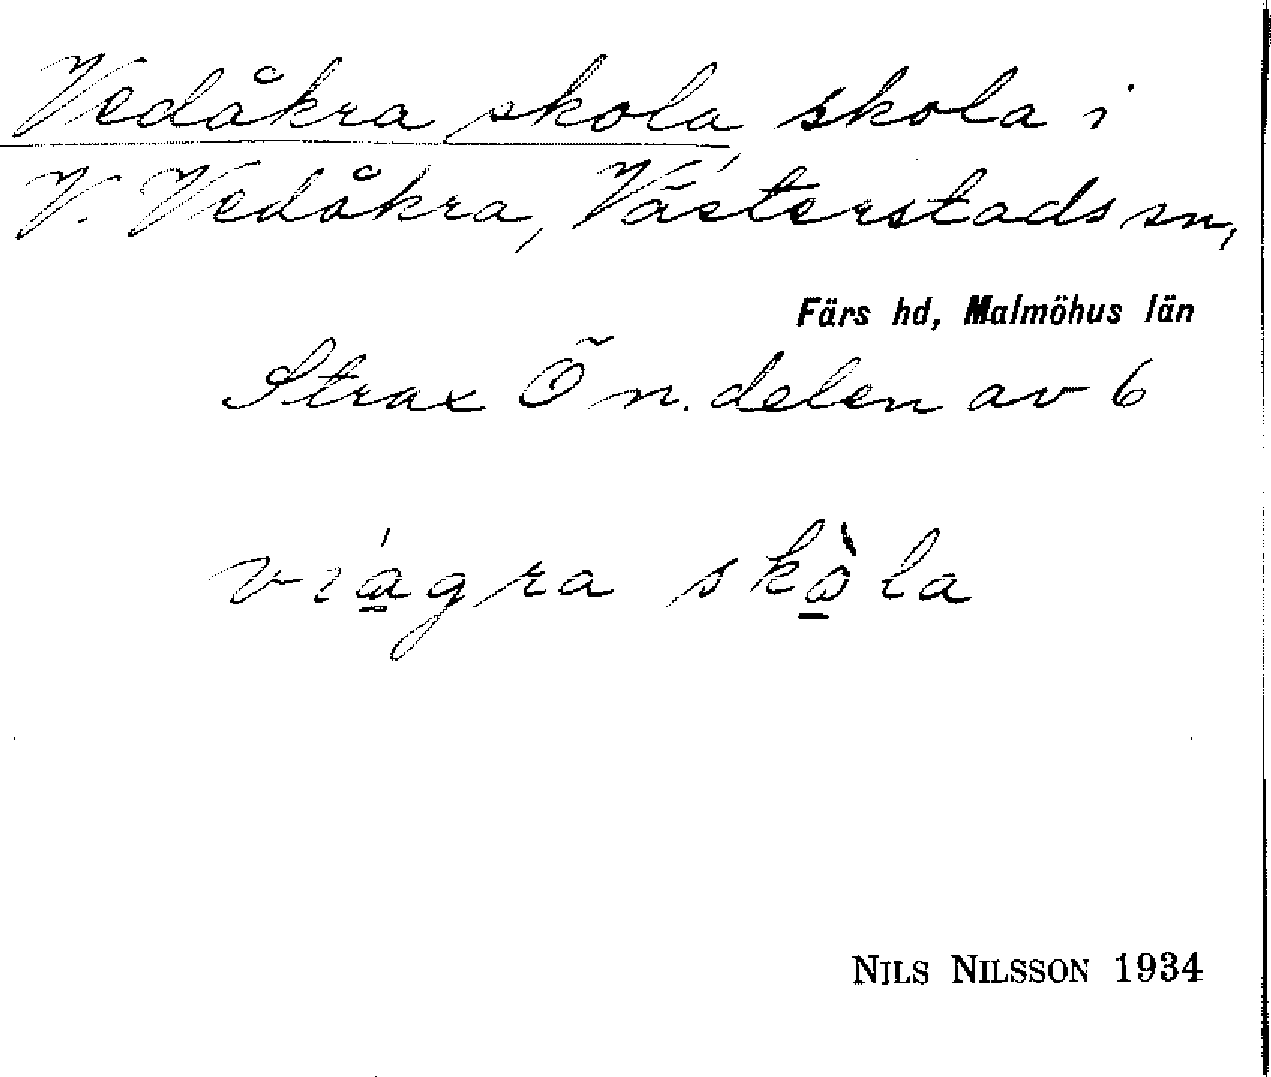 Vedåkra skola, skola i
V. Vedåkra, Västerstads sn,
Färs hd, Malmöhus län
Strax Ö n. delen av 6
viágra skòla
NILS NILSSON 1934